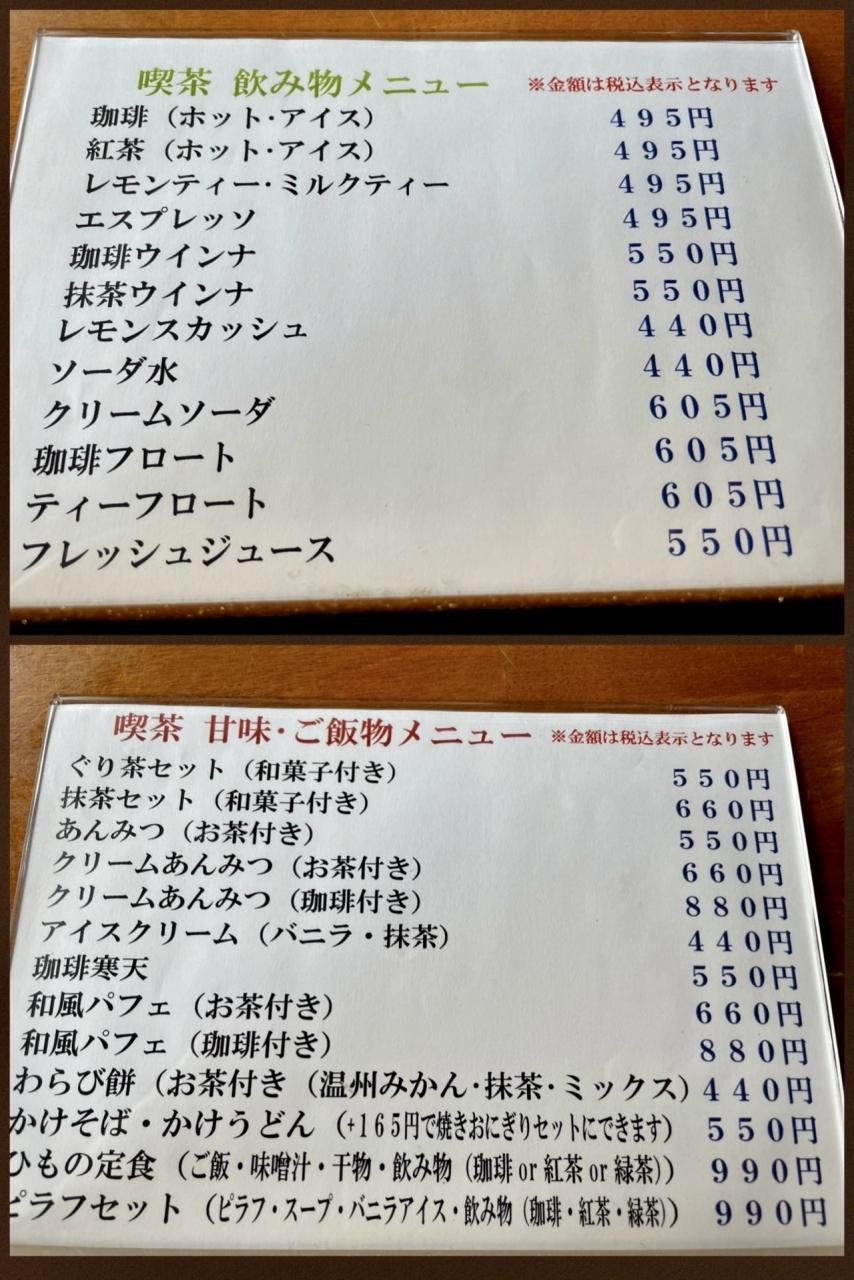 喫茶 飲み物メニュー ※金額は税込表示となります
珈琲（ホット･アイス） 495円
紅茶（ホット･アイス） 495円
レモンティー･ミルクティー 495円
エスプレッソ 495円
珈琲ウインナ 550円
抹茶ウインナ 550円
レモンスカッシュ 440円
ソーダ水 440円
クリームソーダ 605円
珈琲フロート 605円
ティーフロート 605円
フレッシュジュース 550円
喫茶 甘味･ご飯物メニュー ※金額は税込表示となります
ぐり茶セット（和菓子付き） 550円
抹茶セット（和菓子付き） 660円
あんみつ（お茶付き） 550円
クリームあんみつ（お茶付き） 660円
クリームあんみつ（珈琲付き） 880円
アイスクリーム（バニラ・抹茶） 440円
珈琲寒天 550円
和風パフェ（お茶付き） 660円
和風パフェ（珈琲付き） 880円
わらび餅（お茶付き（温州みかん･抹茶･ミックス） 440円
かけそば・かけうどん（+165円で焼きおにぎりセットにできます） 550円
ひもの定食（ご飯・味噌汁・干物・飲み物（珈琲 or 紅茶 or 緑茶）） 990円
ピラフセット（ピラフ・スープ・バニラアイス・飲み物（珈琲・紅茶・緑茶）） 990円